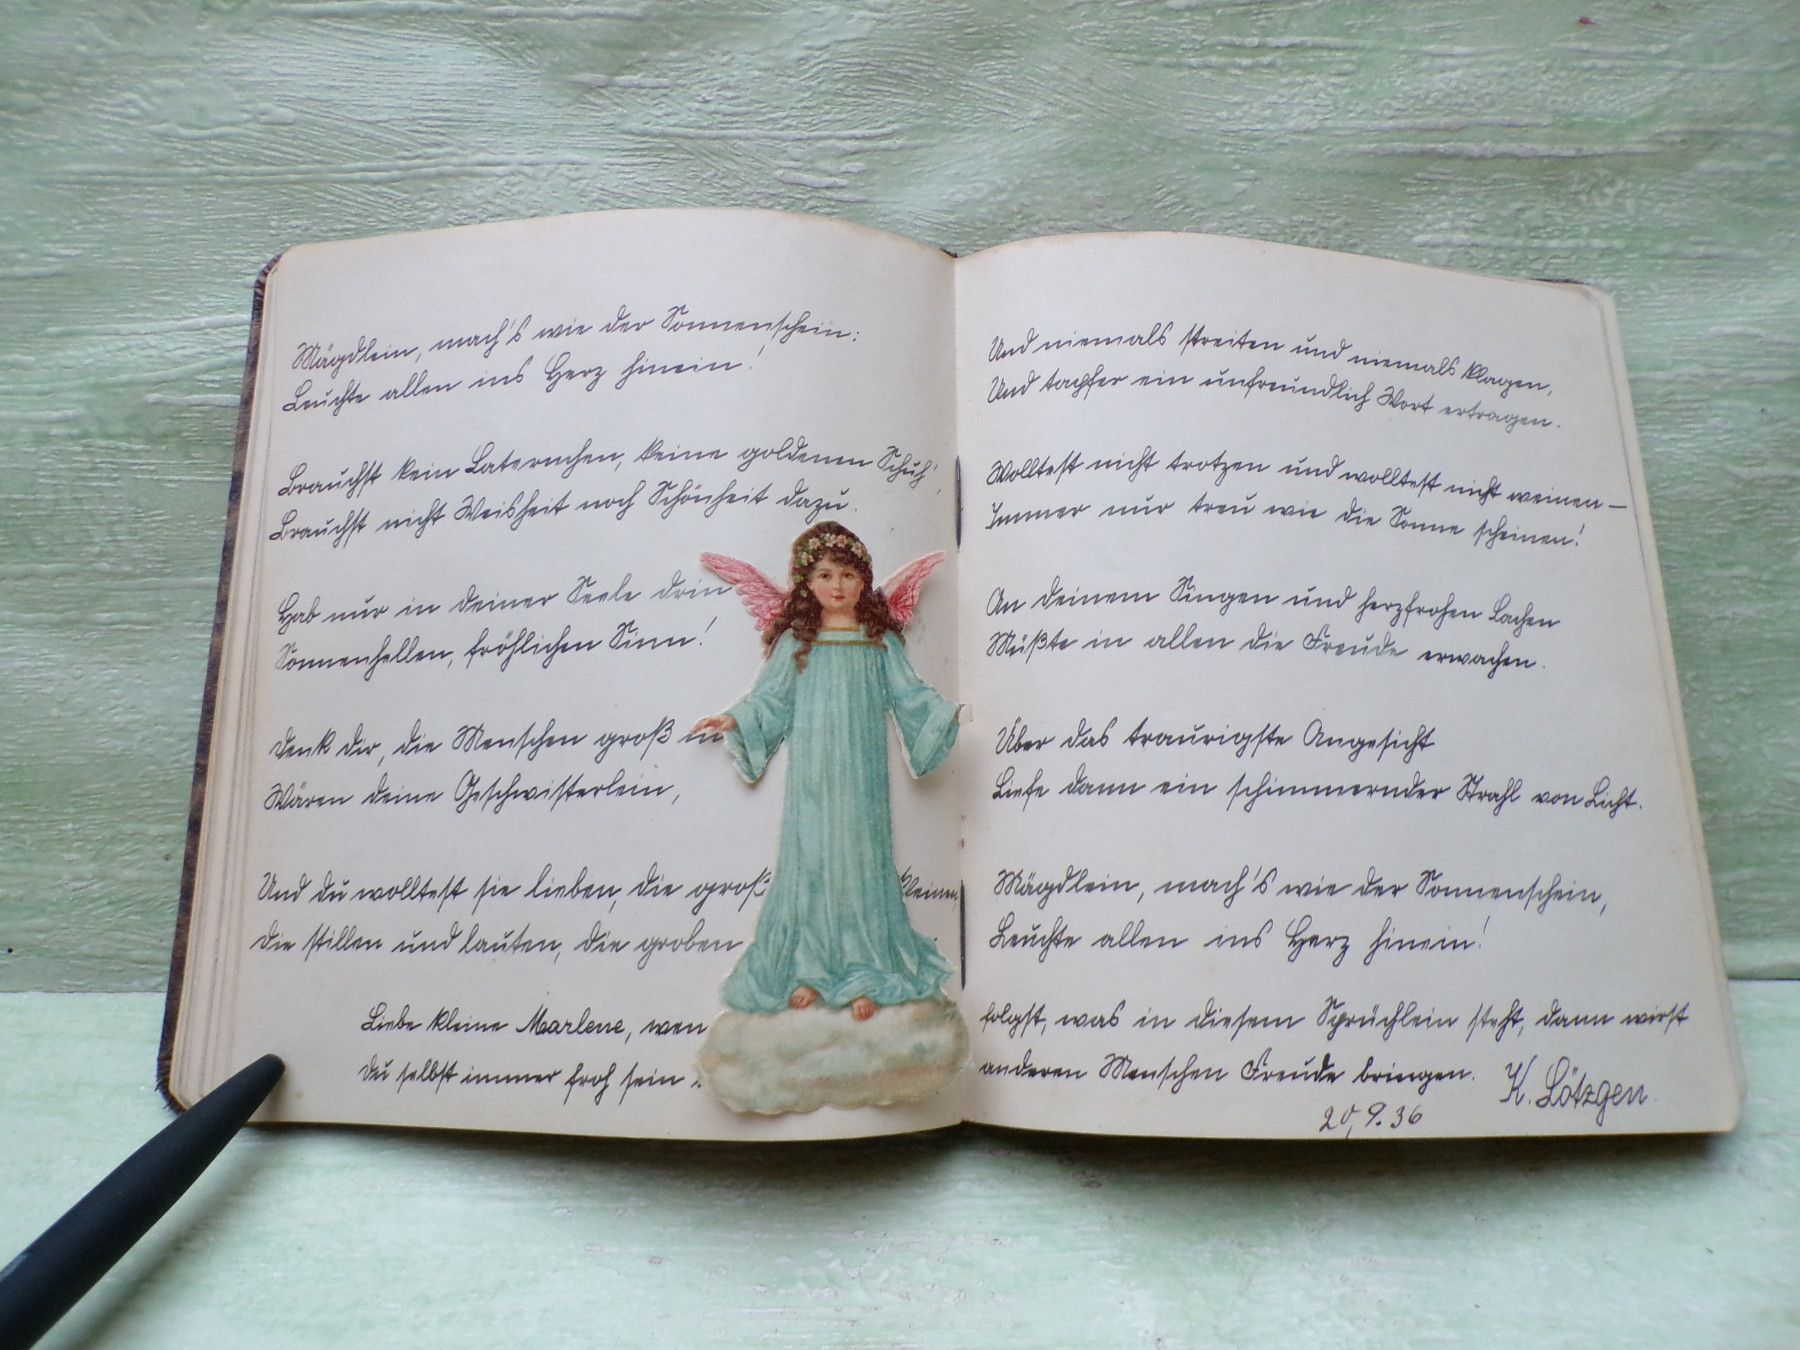 Mägdlein, mach's wie der Sonnenschein:
Leuchte allen ins Herz hinein!
Brauchst kein Laternchen, keine goldenen Schuh',
Brauchst nicht Weisheit noch Schönheit dazu.
Hab nur in deiner Seele drin
Sonnenhellen, fröhlichen Sinn!
Denk dir, die Menschen groß
Wären deine Geschwisterlein,
Und du wolltest sie lieben, die kleinen,
Die stillen und lauten, die groben
Liebe kleine Marlene,
du selbst immer froh sein
Und niemals streiten und niemals klagen,
Und tapfer ein unfreundlich Wort ertragen.
Wolltest nicht trotzen und wolltest nicht weinen –
Immer nur treu wie die Sonne scheinen!
An deinem Singen und herzfrohen Lachen
Müßte in allen die Freude erwachen.
Über das traurigste Angesicht
Liefe dann ein schimmernder Strahl von Licht.
Mägdlein, mach's wie der Sonnenschein,
Leuchte allen ins Herz hinein!
folgst, was in diesem Sprüchlein steht, dann wirst
anderen Menschen Freude bringen.
K. Lötzgen.
20.9.36